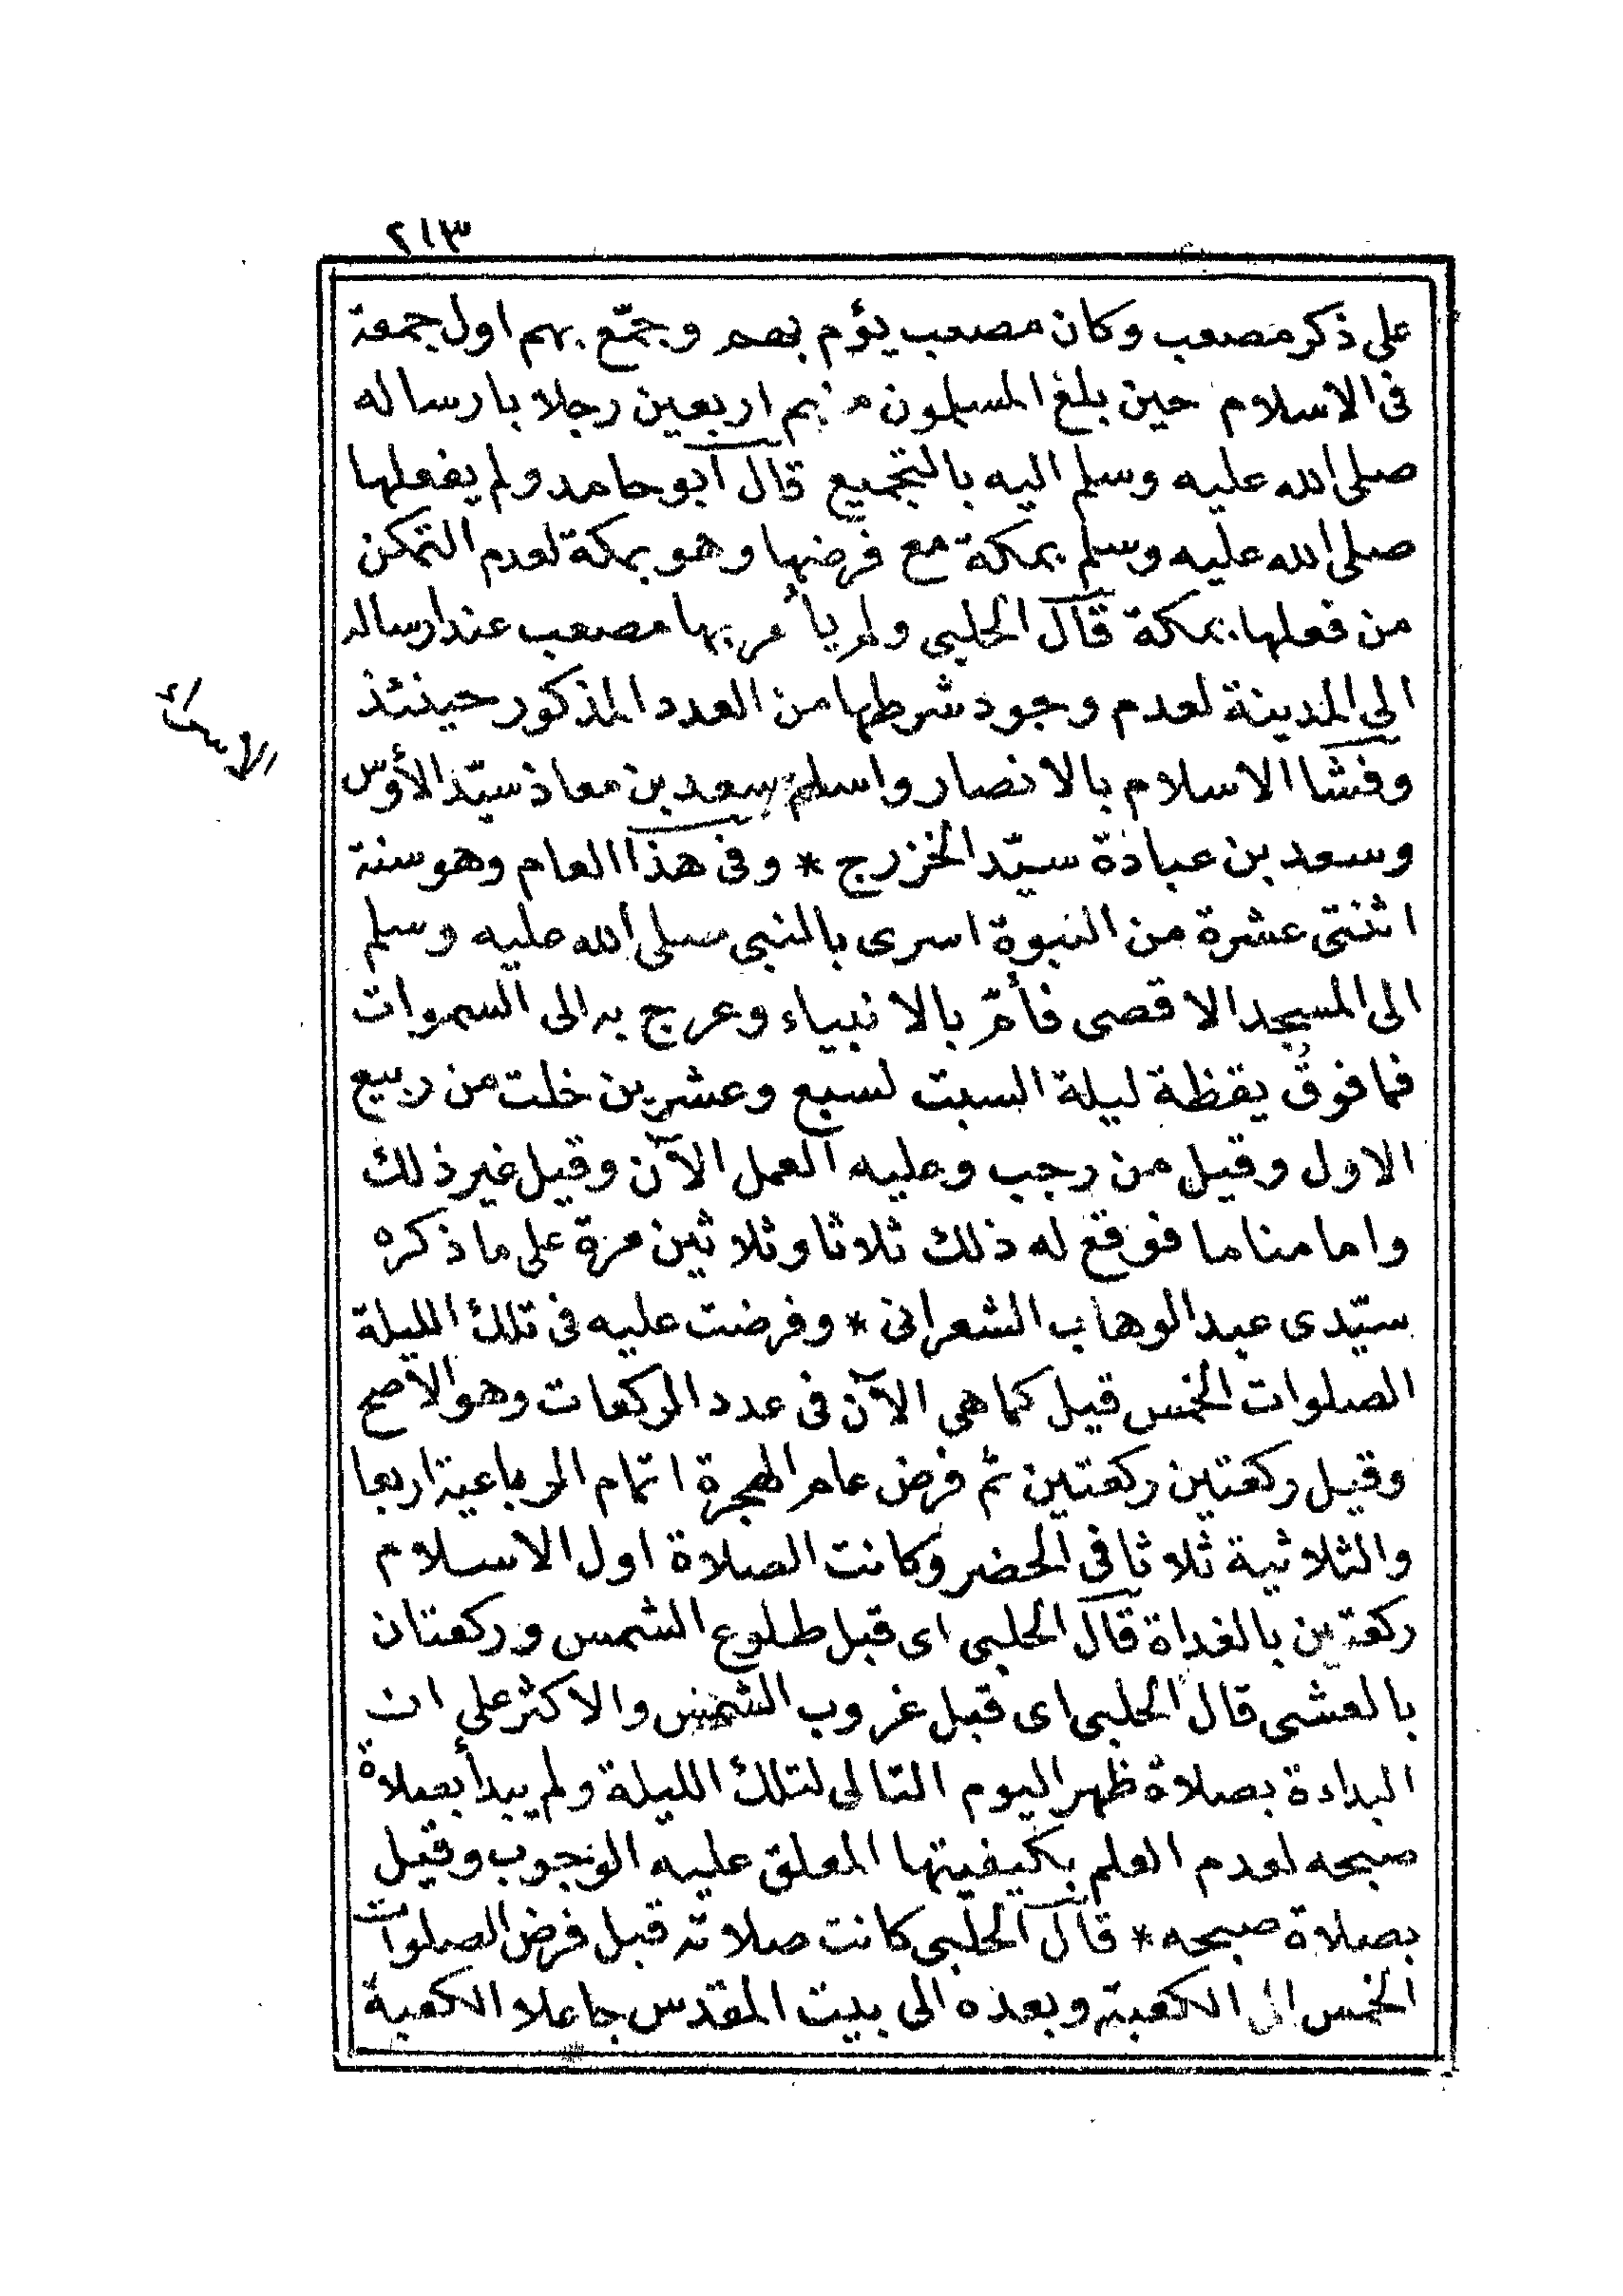 ٢١٣
على ذكر مصعب وكان مصعب يؤم بهم وجمّع بهم اول جمعة
فى الاسلام حين بلغ المسلمون منهم اربعين رجلا بارساله
صلى الله عليه وسلم اليه بالتجميع قال ابو حامد ولم يفعلها
صلى الله عليه وسلم بمكة مع فرضها وهو بمكة لعدم التمكن
من فعلها بمكة قال الحلبى ولم يأمر بها مصعب عند ارساله
الى المدينة لعدم وجود شرطها من العدد المذكور حينئذ
وفشا الاسلام بالانصار واسلم سعد بن معاذ سيّد الأوس
وسعد بن عبادة سيّد الخزرج * وفى هذا العام وهو سنة
اثنتى عشرة من النبوة اسرى بالنبى صلى الله عليه وسلم
الى المسجد الاقصى فأمّ بالانبياء وعرج به الى السموات
فما فوق يقظة ليلة السبت لسبع وعشرين خلت من ربيع
الاول وقيل من رجب وعليه العمل الآن وقيل غير ذلك
واما مناما فوقع له ذلك ثلاثا وثلاثين مرة على ما ذكره
سيّدى عبد الوهاب الشعرانى * وفرضت عليه فى تلك الليلة
الصلوات الخمس قيل كما هى الآن فى عدد الركعات وهو الاصح
وقيل ركعتين ركعتين ثم فرض عام الهجرة اتمام الرباعية اربعا
والثلاثية ثلاثا فى الحضر وكانت الصلاة اول الاسلام
ركعتين بالغداة قال الحلبى اى قبل طلوع الشمس وركعتان
بالعشى قال الحلبى اى قبل غروب الشمس والاكثر على ان
البداءة بصلاة ظهر اليوم التالى لتلك الليلة ولم يبدأ بصلاة
صبحه لعدم العلم بكيفيتها المعلق عليه الوجوب وقيل
بصلاة صبحه * قال الحلبى كانت صلاته قبل فرض الصلوات
الخمس الى الكعبة وبعده الى بيت المقدس جاعلا الكعبة